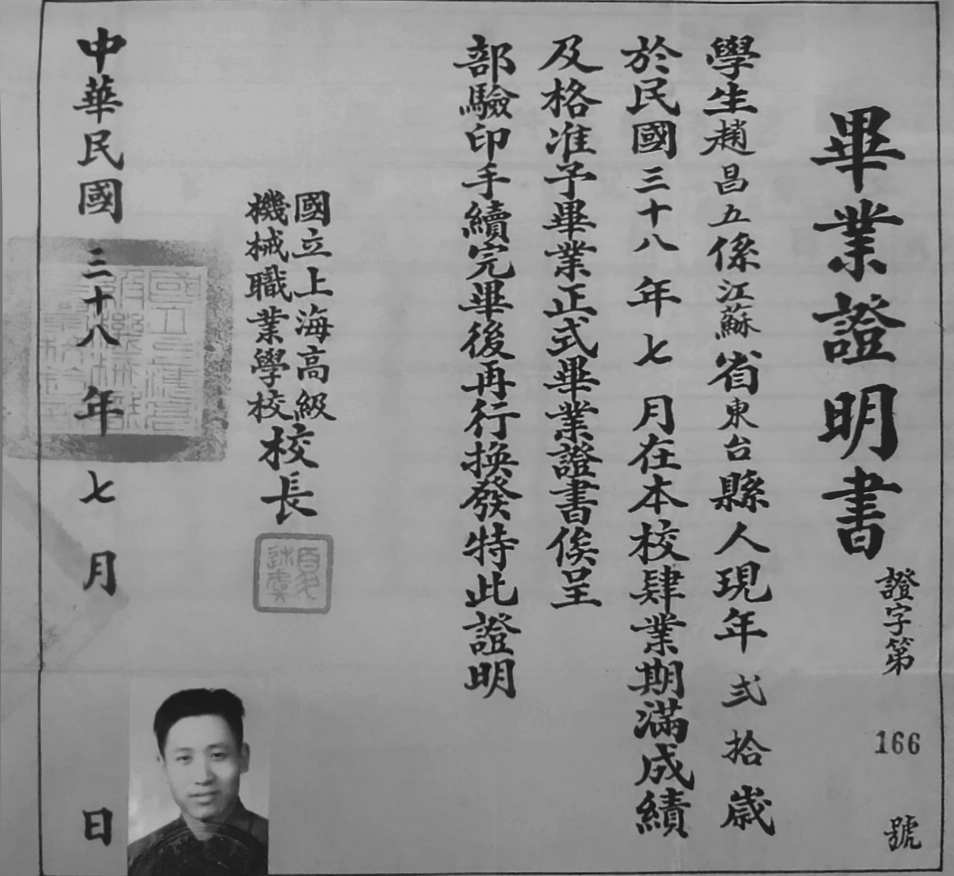 畢業證明書
證字第 166 號
學生趙昌五係江蘇省東台縣人現年弍拾歲
於民國三十八年七月在本校肄業期滿成績
及格准予畢業正式畢業證書俟呈
部驗印手續完畢後再行換發特此證明
國立上海高級
機械職業學校
校長
中華民國三十八年七月 日